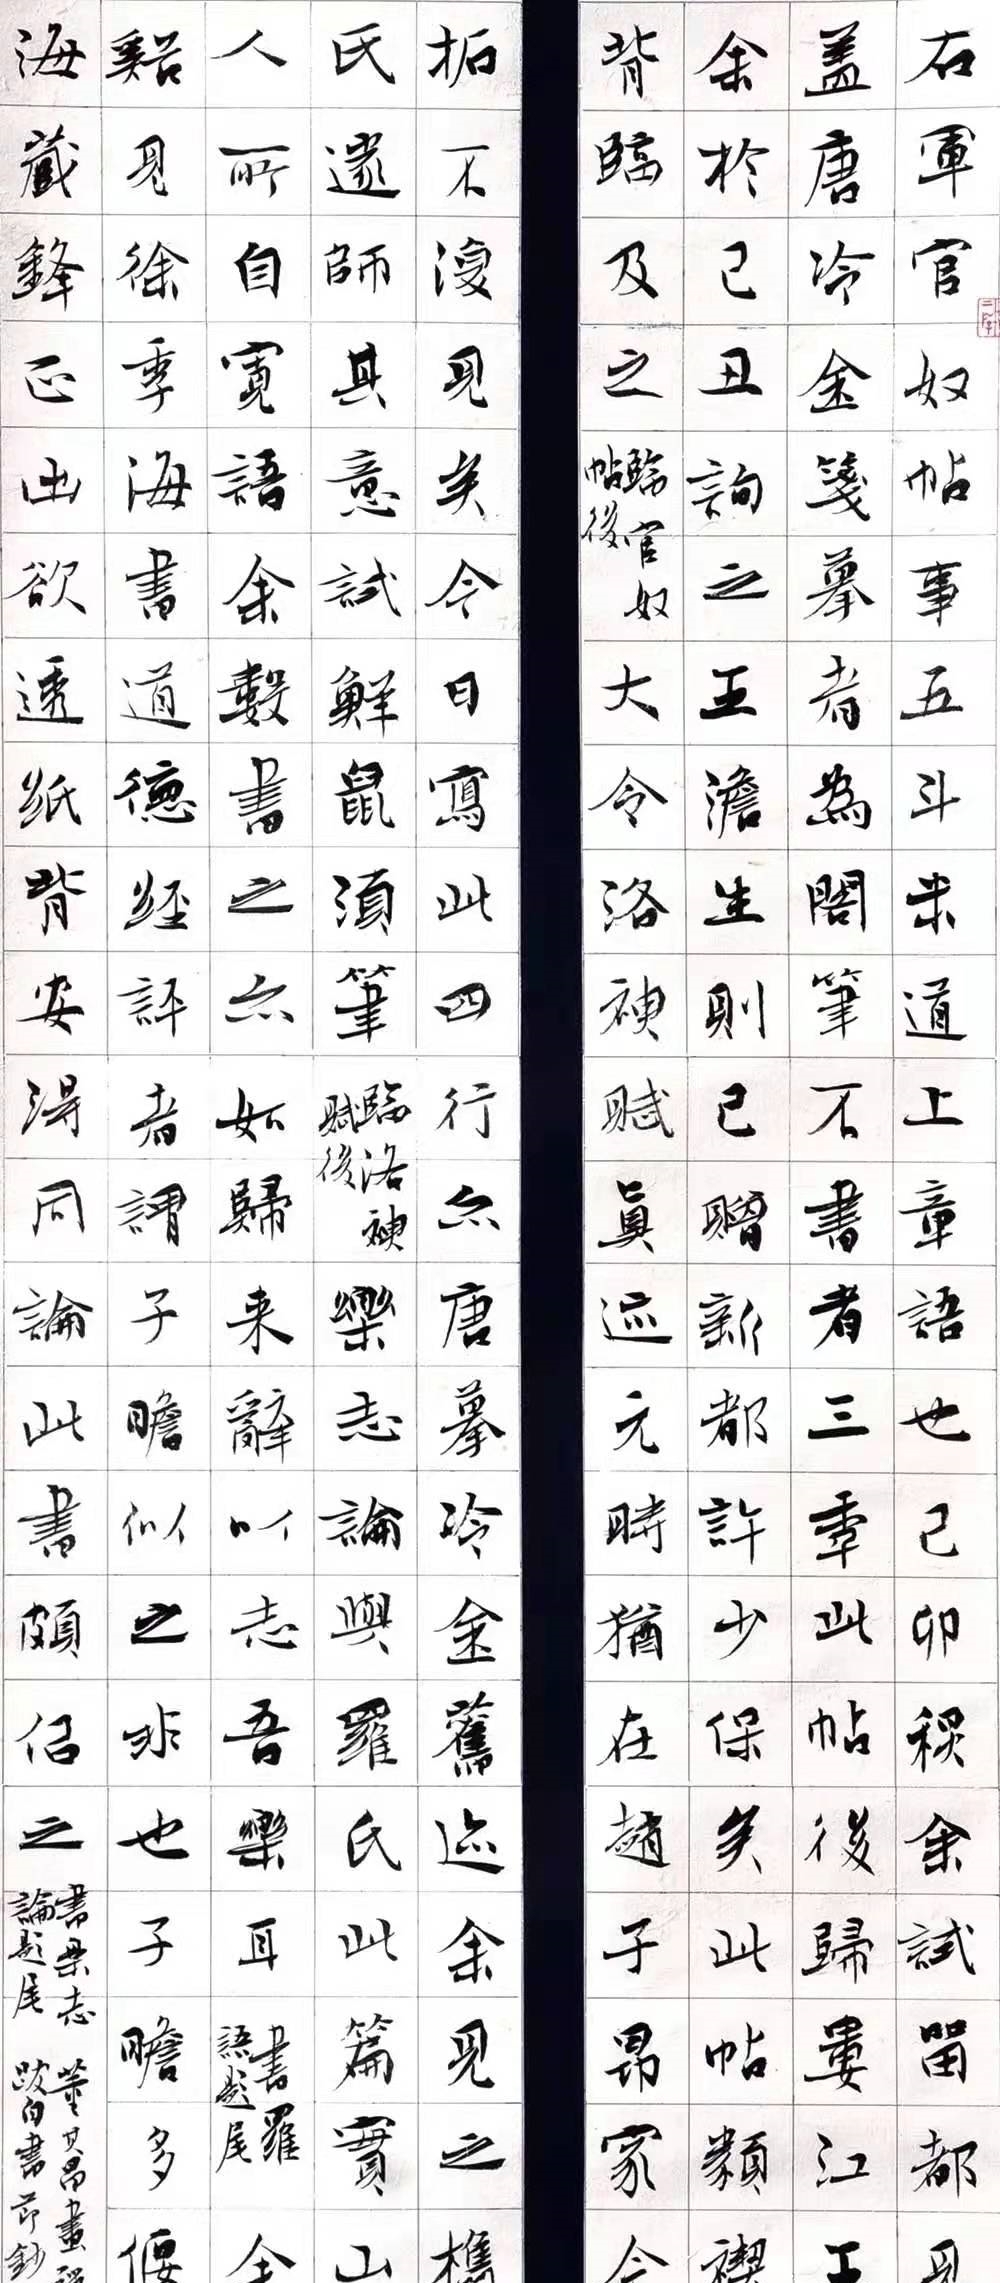 右軍官奴帖事五斗米道上章語也己卯秋余試留都見
蓋唐冷金箋摹者為閣筆不書者三季此帖後歸婁江王
余於己丑詢之王澹生則已贈新都許少保矣此帖類禊
背臨及之
臨官奴
帖後
大令洛神賦真迹元時猶在趙子昂家今
拓不復見矣今日寫此四行亦唐摹冷金舊迹余見之檇
氏遂師其意試鮮鼠須筆
臨洛神
賦後
樂志論與羅氏此篇實山
人所自寬語余數書之亦如歸来辭以志吾樂耳
書羅
語題尾
全
谿見徐季海書道德經評者謂子瞻似之非也子瞻多偃
海藏鋒正欲透紙背安得同論此書頗佀之
書樂志
論題尾
董其昌畫禪
跋自書節鈔